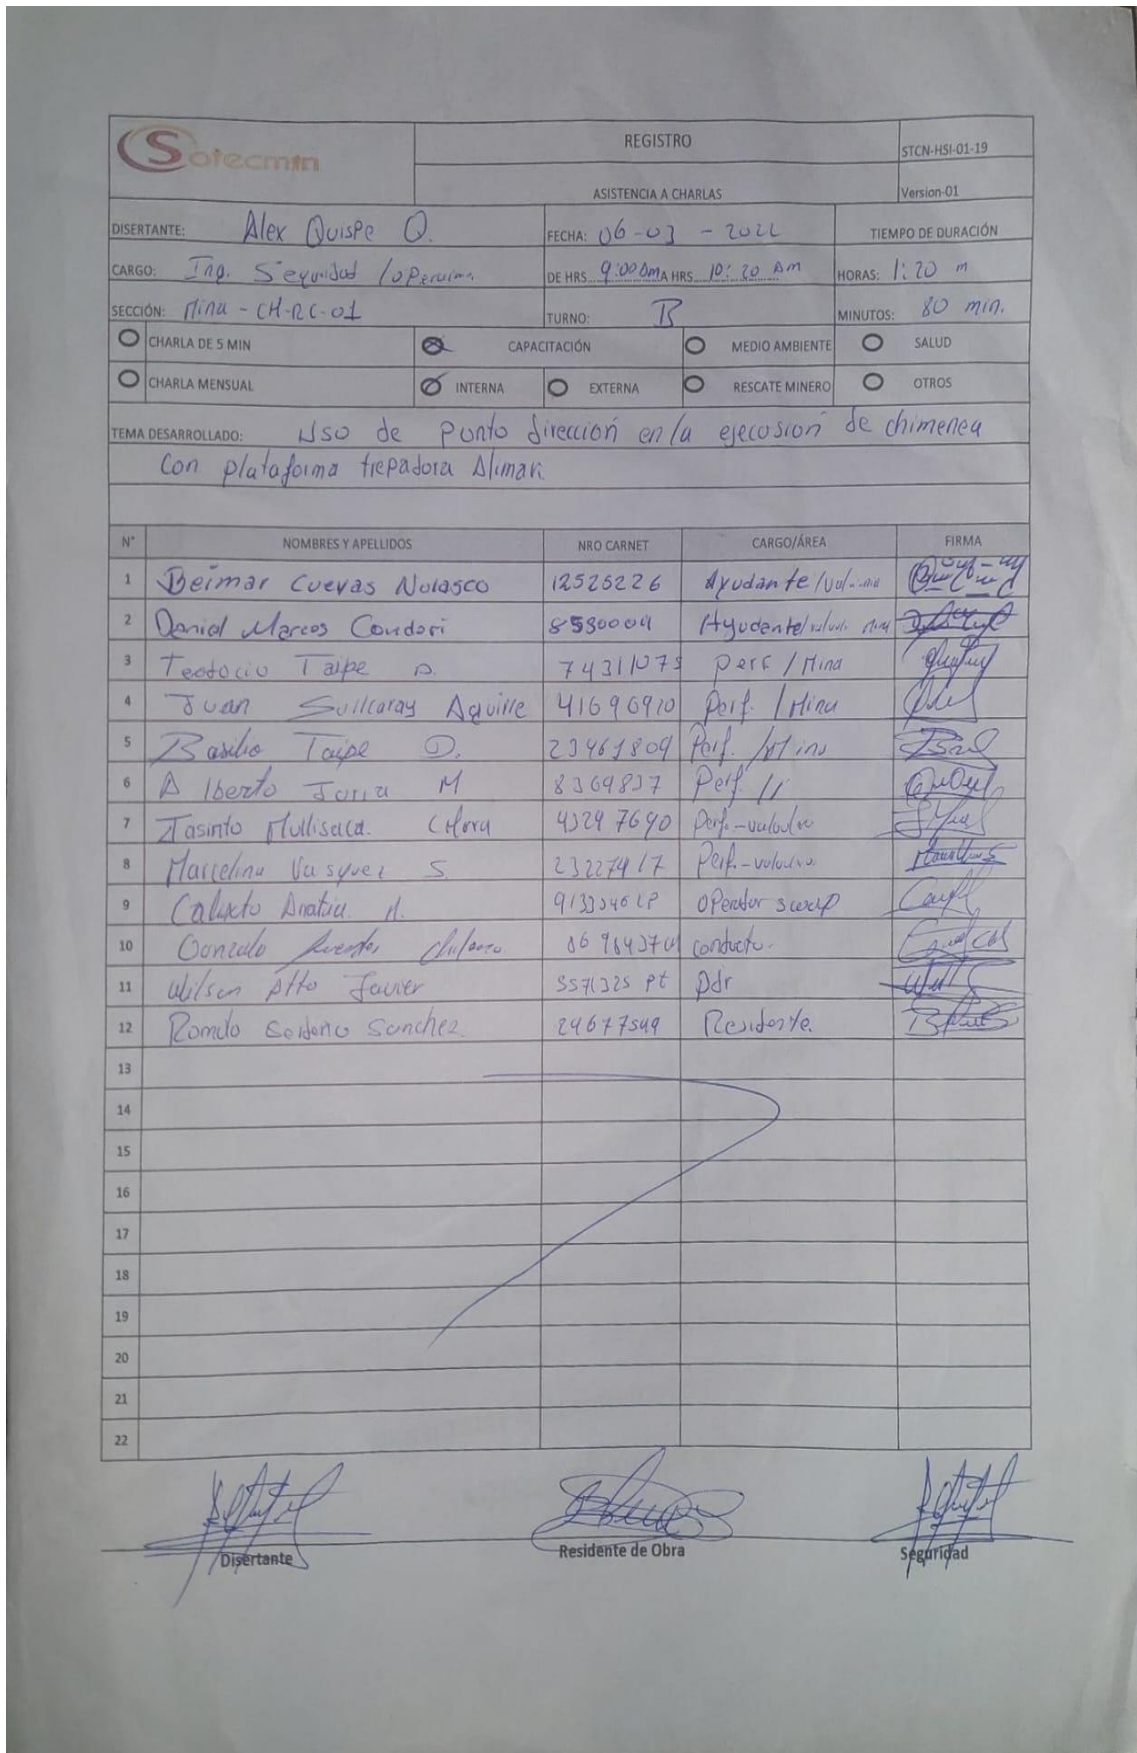 Sotecmin
REGISTRO
STCN-HSI-01-19
ASISTENCIA A CHARLAS
Version-01
DISERTANTE: Alex Quispe Q. FECHA: 06-03-2022 TIEMPO DE DURACIÓN
CARGO: Ing. Seguridad DE HRS. 9:00 am A HRS. 10:20 Am HORAS: 1:20 m
SECCIÓN: Mina - CH-RC-01 TURNO: B MINUTOS: 80 min.
CHARLA DE 5 MIN CAPACITACIÓN MEDIO AMBIENTE SALUD
CHARLA MENSUAL INTERNA EXTERNA RESCATE MINERO OTROS
TEMA DESARROLLADO: Uso de punto dirección en la ejecusión de chimenea
con plataforma trepadora Alimak.
N° NOMBRES Y APELLIDOS NRO CARNET CARGO/ÁREA FIRMA
1 Beimar Cuevas Nolasco 12525226 Ayudante
2 Daniel Marcos Condori Ayudante
3 Teodocio Taipe D. Perf / Mina
4 Juan Sullcaray Aguirre 41696920 Perf. / Mina
5 Basilio Taipe D. 23461809 Perf. / Mina
6 Alberto M 8369837 Perf. 11
7 Jasinto Mullisaca 43247690 Perf.-
8 Marcelino Vasquez S. 23227417 Perf.-
9 Calixto M. Operador
10 Gonzalo conductor
11 Wilson Atto Javier 5571325 Pt Pdr
12 Sanchez Residente
13
14
15
16
17
18
19
20
21
22
Disertante Residente de Obra Seguridad